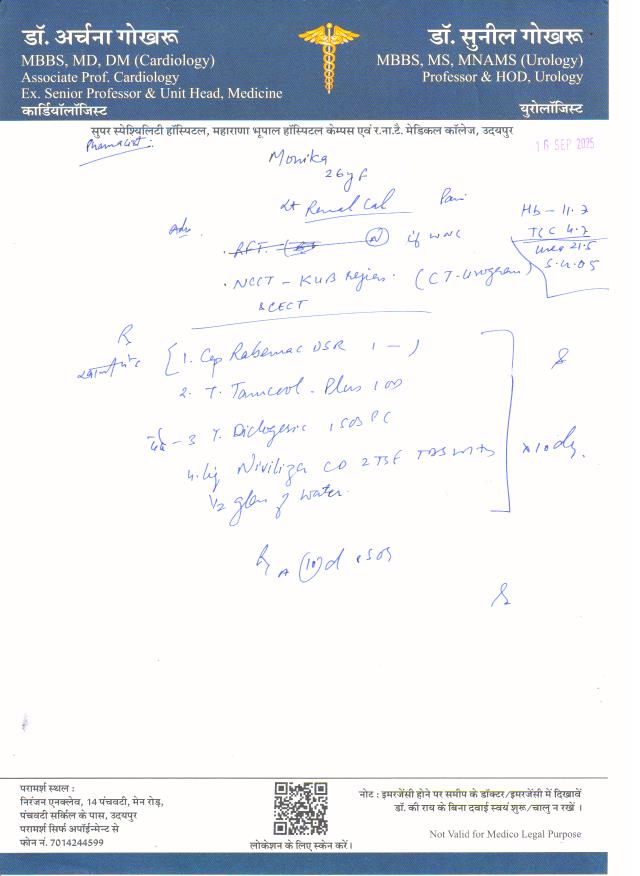 डॉ. अर्चना गोखरू
MBBS, MD, DM (Cardiology)
Associate Prof. Cardiology
Ex. Senior Professor & Unit Head, Medicine
कार्डियॉलॉजिस्ट
डॉ. सुनील गोखरू
MBBS, MS, MNAMS (Urology)
Professor & HOD, Urology
युरोलॉजिस्ट
सुपर स्पेश्यिलिटी हॉस्पिटल, महाराणा भूपाल हॉस्पिटल केम्पस एवं र.ना.टै. मेडिकल कॉलेज, उदयपुर
16 SEP 2025
Monika
26y F
Lt Renal Cal Pain
Adv.
Hb - 11.7
TLC 4.7
Urea 21.5
. RFT. (N) if WNL
. NCCT - KUB Region. (CT-Urogram)
& CECT
1. Cap Rabemac DSR 1 - 1
2. T. Tamcool - Plus 1 OD
3 T. Diclogesic 1 SOS PC
4. Liq Nivilizer CD 2 TSF TDS with
1/2 glass of water.
x 10 days.
(10) d SOS
परामर्श स्थल :
निरंजन एनक्लेव, 14 पंचवटी, मेन रोड़,
पंचवटी सर्किल के पास, उदयपुर
परामर्श सिर्फ अपॉईन्मेन्ट से
फोन नं. 7014244599
लोकेशन के लिए स्केन करें।
नोट : इमरजेंसी होने पर समीप के डॉक्टर/इमरजेंसी में दिखावें
डॉ. की राय के बिना दवाई स्वयं शुरू/चालु न रखें ।
Not Valid for Medico Legal Purpose